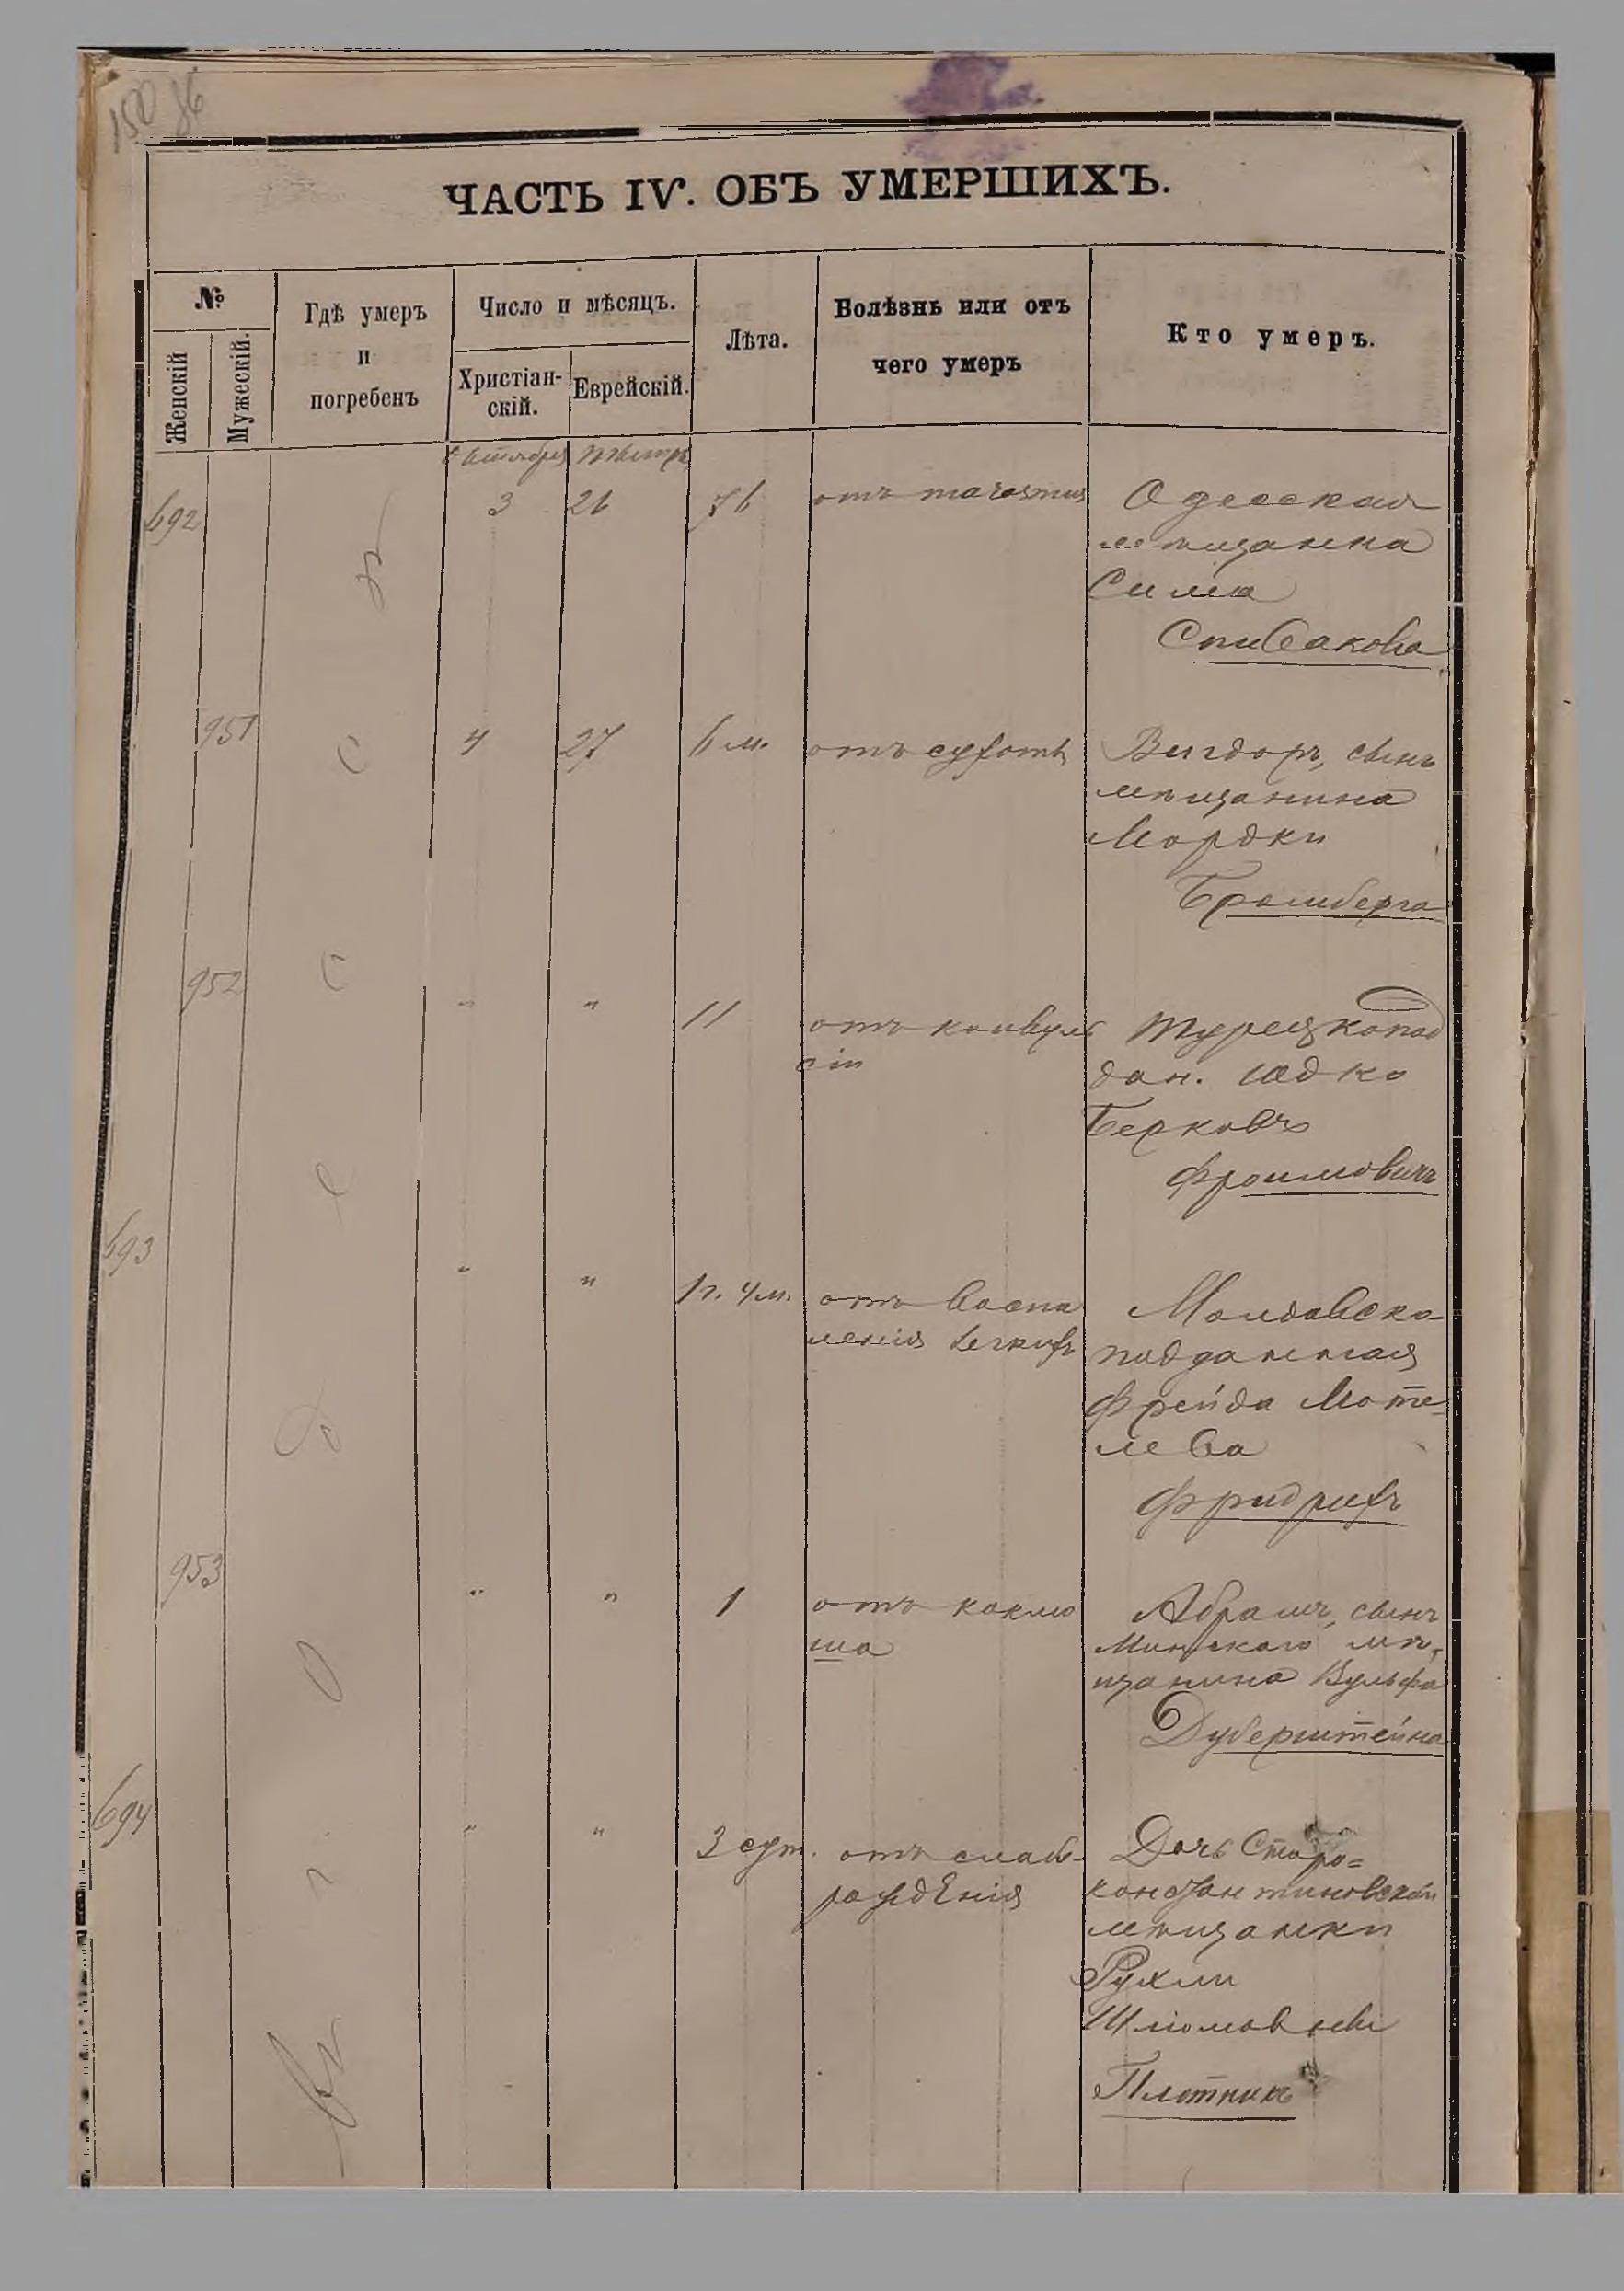 150 86
ЧАСТЬ IV. ОБЪ УМЕРШИХЪ.
№
Женскій
Мужескій.
Гдѣ умеръ
и
погребенъ
Число и мѣсяцъ.
Христіан-
скій.
Еврейскій.
Лѣта.
Болѣзнь или отъ
чего умеръ
Кто умеръ.
692
3
26
76
отъ marasmus
Одесская
мѣщанка
Сима
Спивакова
951
4
27
6 м.
отъ сухоты
Вигдоръ, сынъ
мѣщанина
Мордки
Бромберга
952
"
"
11
отъ конвуль
сіи
Турецкопод
дан. Юдко
Берковъ
Фроимовичъ
693
"
"
1 г. 4 м.
отъ воспа
ленія легкихъ
Молдавско-
подданная
Фрейда Моте-
лева
Фридрихъ
953
"
"
1
отъ коклю
ша
Абрамъ, сынъ
Минскаго мѣ-
щанина Вульфа
Дуберштейна
694
"
"
3 сут.
отъ слаб.
рожденія
Дочь Старо=
константиновской
мѣщанки
Рухли
Шліомовны
Плотникъ
Въ Одессѣ